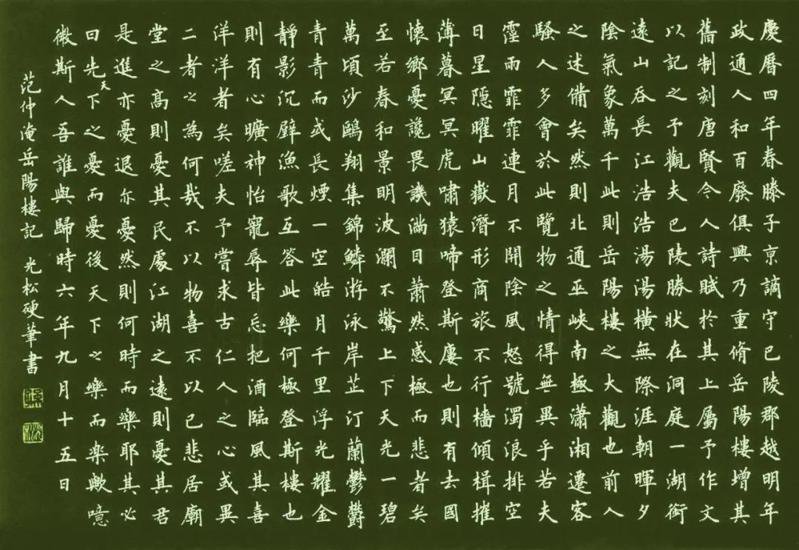 慶曆四年春滕子京謫守巴陵郡越明年
政通人和百廢俱興乃重脩岳陽樓增其
舊制刻唐賢今人詩賦於其上屬予作文
以記之予觀夫巴陵勝狀在洞庭一湖銜
遠山吞長江浩浩湯湯橫無際涯朝暉夕
陰氣象萬千此則岳陽樓之大觀也前人
之述備矣然則北通巫峽南極瀟湘遷客
騷人多會於此覽物之情得無異乎若夫
霪雨霏霏連月不開陰風怒號濁浪排空
日星隱曜山嶽潛形商旅不行檣傾楫摧
薄暮冥冥虎嘯猿啼登斯樓也則有去國
懷鄉憂讒畏譏滿目蕭然感極而悲者矣
至若春和景明波瀾不驚上下天光一碧
萬頃沙鷗翔集錦鱗游泳岸芷汀蘭鬱鬱
青青而或長煙一空皓月千里浮光耀金
靜影沉璧漁歌互答此樂何極登斯樓也
則有心曠神怡寵辱皆忘把酒臨風其喜
洋洋者矣嗟夫予嘗求古仁人之心或異
二者之為何哉不以物喜不以己悲居廟
堂之高則憂其民處江湖之遠則憂其君
是進亦憂退亦憂然則何時而樂耶其必
曰先天下之憂而憂後天下之樂而樂歟噫
微斯人吾誰與歸時六年九月十五日
范仲淹岳陽樓記 光松硬筆書